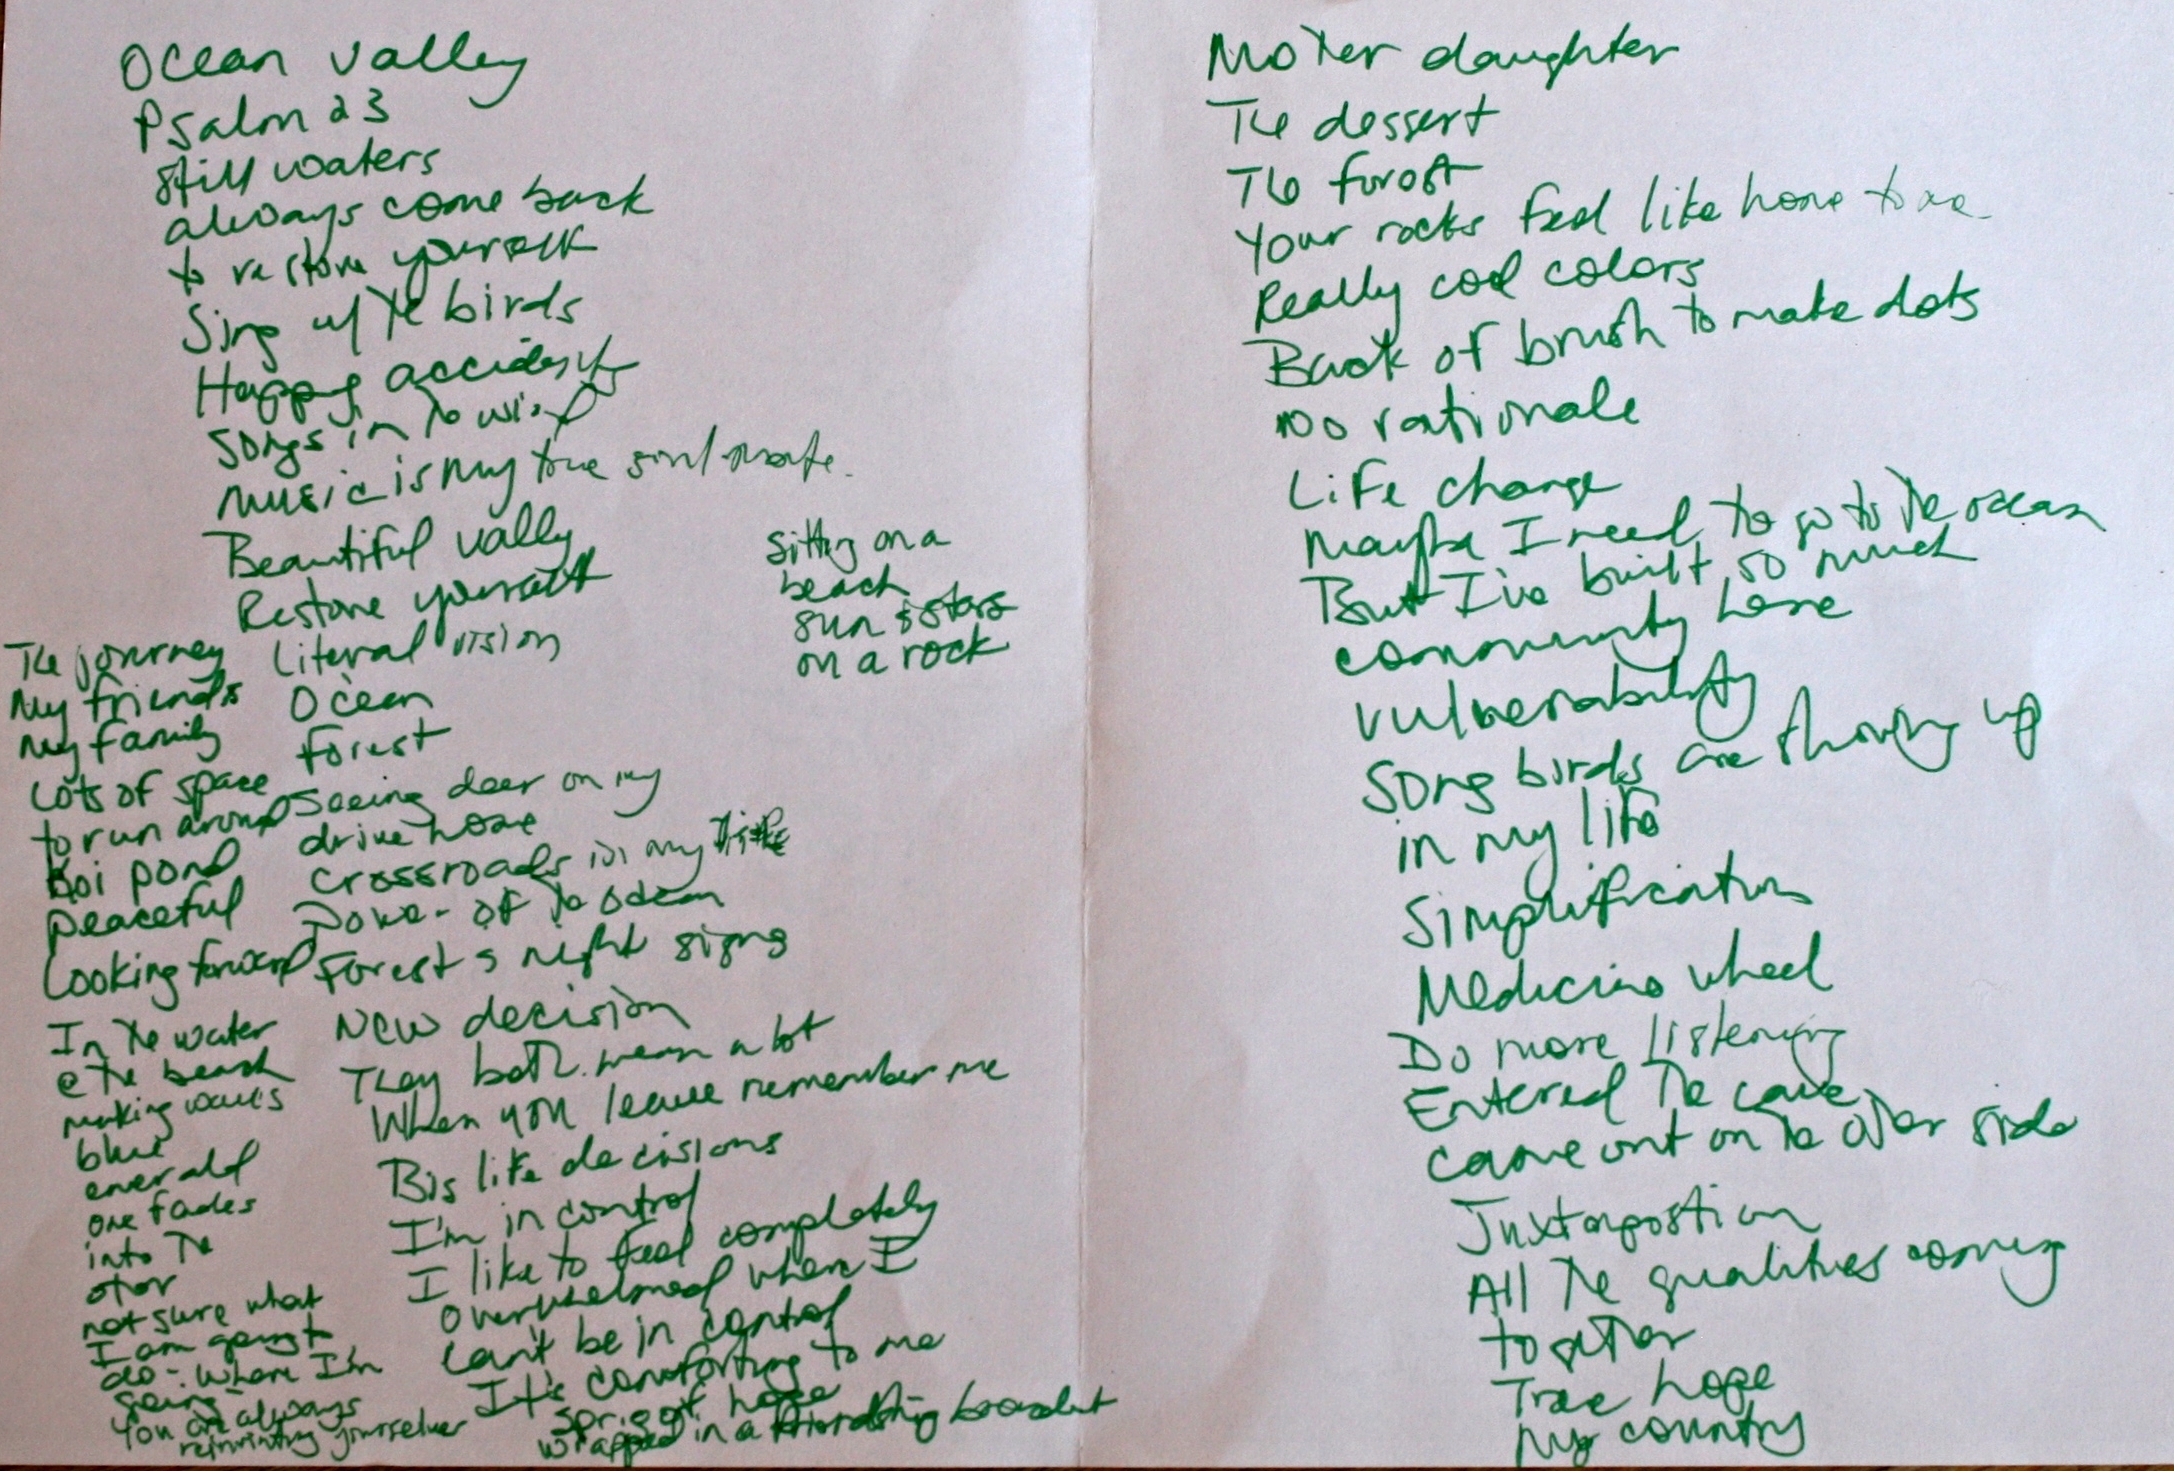 Ocean valley
Psalm 23
still waters
always come back
to restore yourself
Sing w/ the birds
Happy accidents
Songs in the wind
Music is my true soul mate.
Beautiful vally
Restore yourself
Literal vision
Ocean
Forest
Seeing deer on my
drive home
crossroads in my life
Power of the ocean
Forest & night signs
New decision
They both mean a lot
When you leave remember me
Big life decisions
I'm in control
I like to feel completely
overwhelmed when I
can't be in control
It's comforting to me
Sprig of hope
wrapped in a friendship bracelet
sitting on a
beach
sun & stars
on a rock
The journey
My friends
My family
Lots of space
to run around
Koi pond
Peaceful
Looking forward
In the water
@ the beach
making waves
blue
emerald
one fades
into the
other
not sure what
I am going to
do - where I'm
going
You are always
reinventing yourselves
Mother daughter
The dessert
The forest
Your rocks feel like home to me
Really cool colors
Back of brush to make dots
No rationale
Life change
Maybe I need to go to the ocean
But I've built so much
community here
vulnerability
Song birds are showing up
in my life
Simplification
Medicine wheel
Do more listening
Entered the cave
came out on the other side
Juxtaposition
All the qualities coming
together
True hope
My country